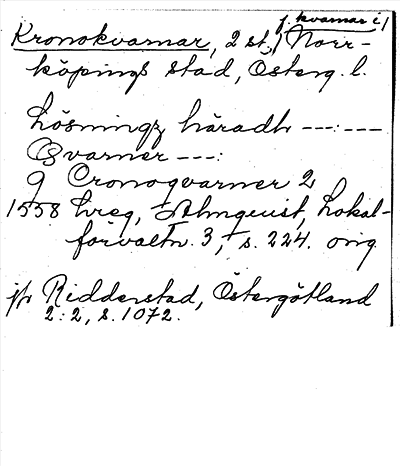 f. kvarnar i/
Kronokvarnar, 2 st., Norr-
köpings stad, Österg. l.
Lösningz häradh ---:---
Qvarner ---:
9 Cronoqvarner 2
1558 hreg, Almquist, Lokal-
förvaltn. 3, s. 224. orig
jfr Ridderstad, Östergötland
2:2, s. 1072.